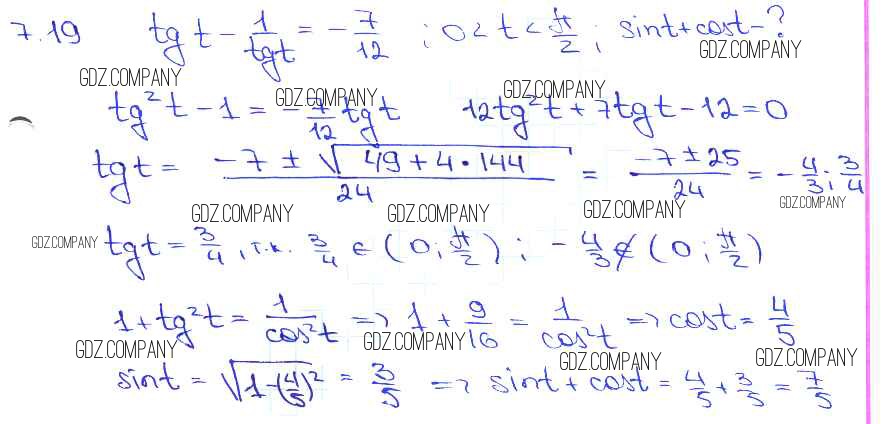 7.19 tg t - 1/tgt = - 7/12 ; 0 < t < π/2 ; sint+cost - ?
GDZ.COMPANY GDZ.COMPANY
tg²t - 1 = - 7/12 tgt 12tg²t + 7tgt - 12 = 0
GDZ.COMPANY GDZ.COMPANY
tgt = (-7 ± √(49 + 4 • 144))/24 = (-7 ± 25)/24 = - 4/3 ; 3/4
GDZ.COMPANY GDZ.COMPANY GDZ.COMPANY GDZ.COMPANY
GDZ.COMPANY tgt = 3/4 , т.к. 3/4 ∈ (0 ; π/2) ; - 4/3 ∉ (0 ; π/2)
1 + tg²t = 1/cos²t => 1 + 9/16 = 1/cos²t => cost = 4/5
GDZ.COMPANY GDZ.COMPANY GDZ.COMPANY GDZ.COMPANY
sint = √(1-(4/5)²) = 3/5 => sint + cost = 4/5 + 3/5 = 7/5